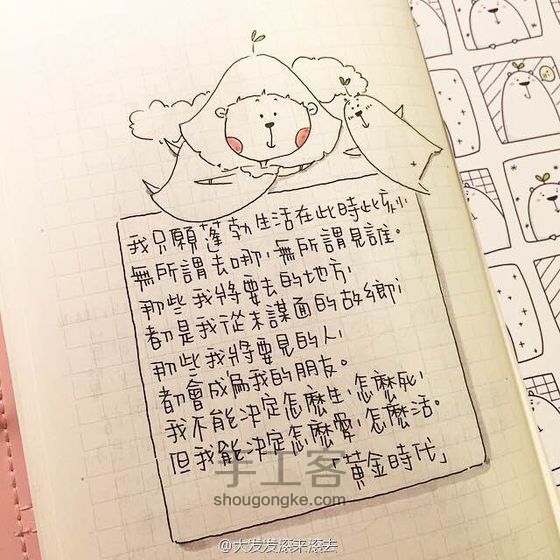 我只願蓬勃生活在此時此刻,
無所謂去哪,無所謂見誰。
那些我將要去的地方,
都是我從未謀面的故鄉,
那些我將要見的人,
都會成為我的朋友。
我不能決定怎麼生,怎麼死,
但我能決定怎麼愛,怎麼活。
「黃金時代」
手工客
shougongke.com
@大发发滚来滚去